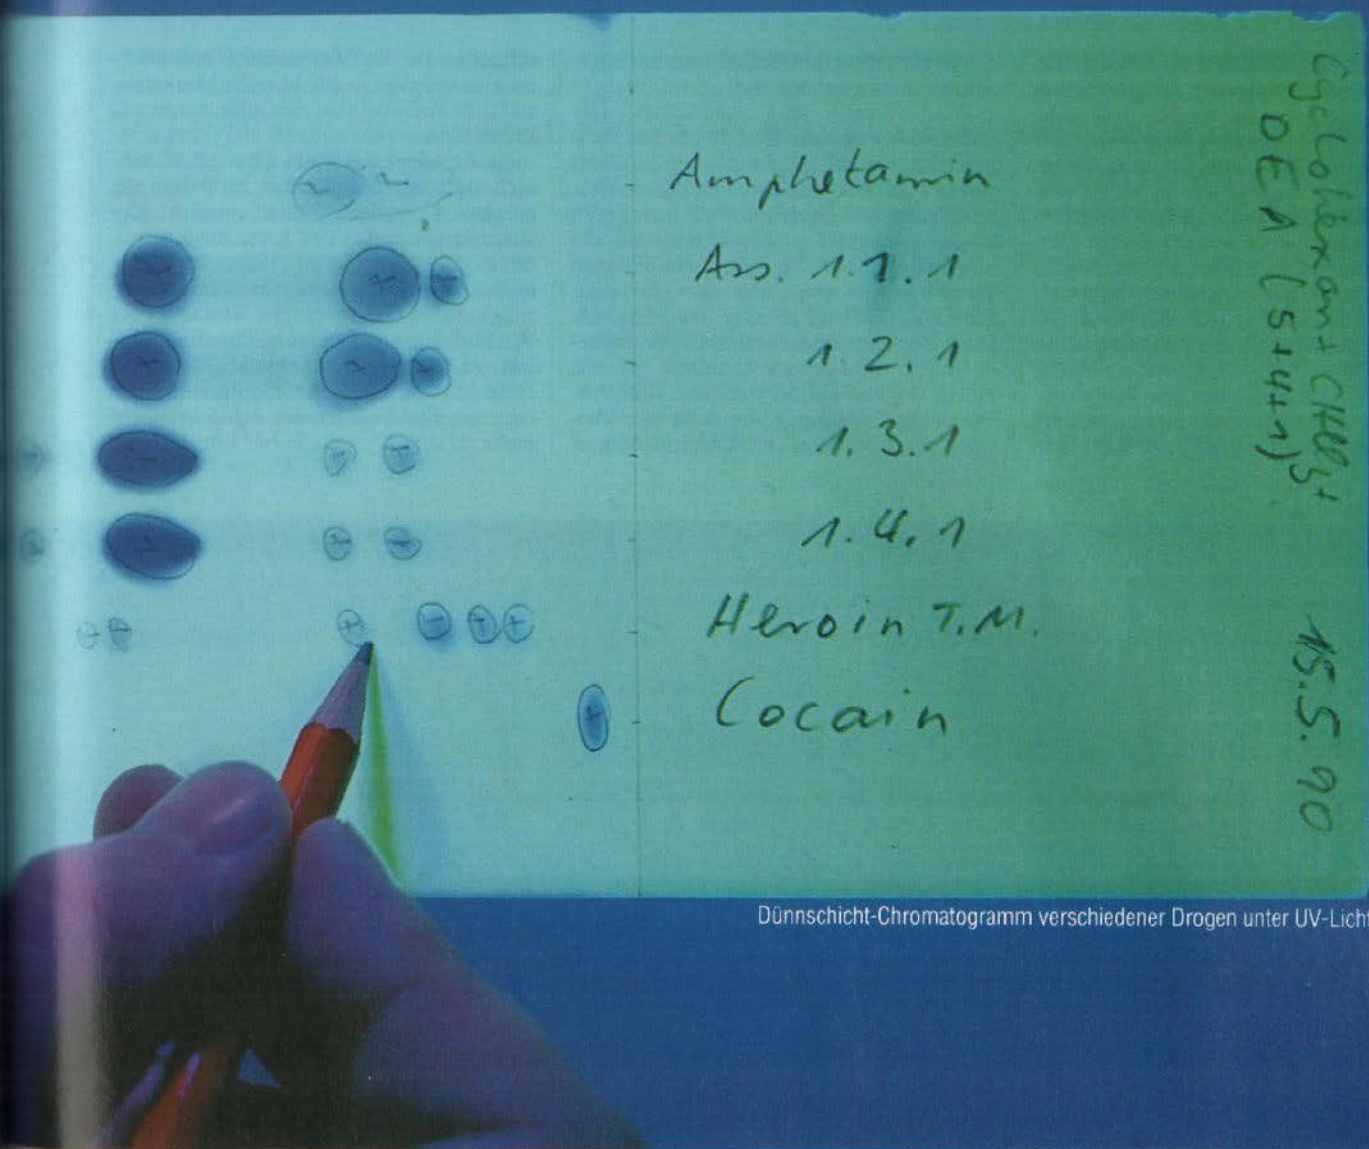 Amphetamin
Ass. 1.1.1
1.2.1
1.3.1
1.4.1
Heroin T.M.
Cocain
Cyclohexan + CHCl3 +
DEA (5+4+1)
15.5.90
Dünnschicht-Chromatogramm verschiedener Drogen unter UV-Licht